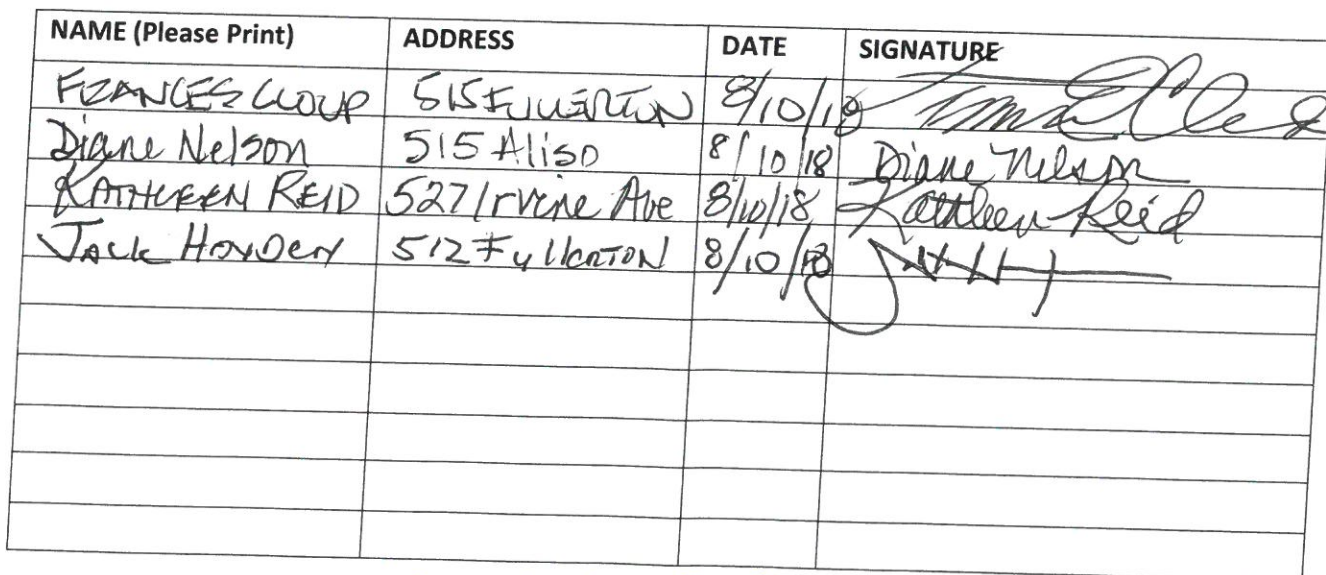 NAME (Please Print) ADDRESS DATE SIGNATURE
FRANCES CLOUD 515 FULLERTON 8/10/18
Diane Nelson 515 Aliso 8/10/18 Diane Nelson
KATHLEEN REID 527 Irvine Ave 8/10/18 Kathleen Reid
JACK 512 Fullerton 8/10/18